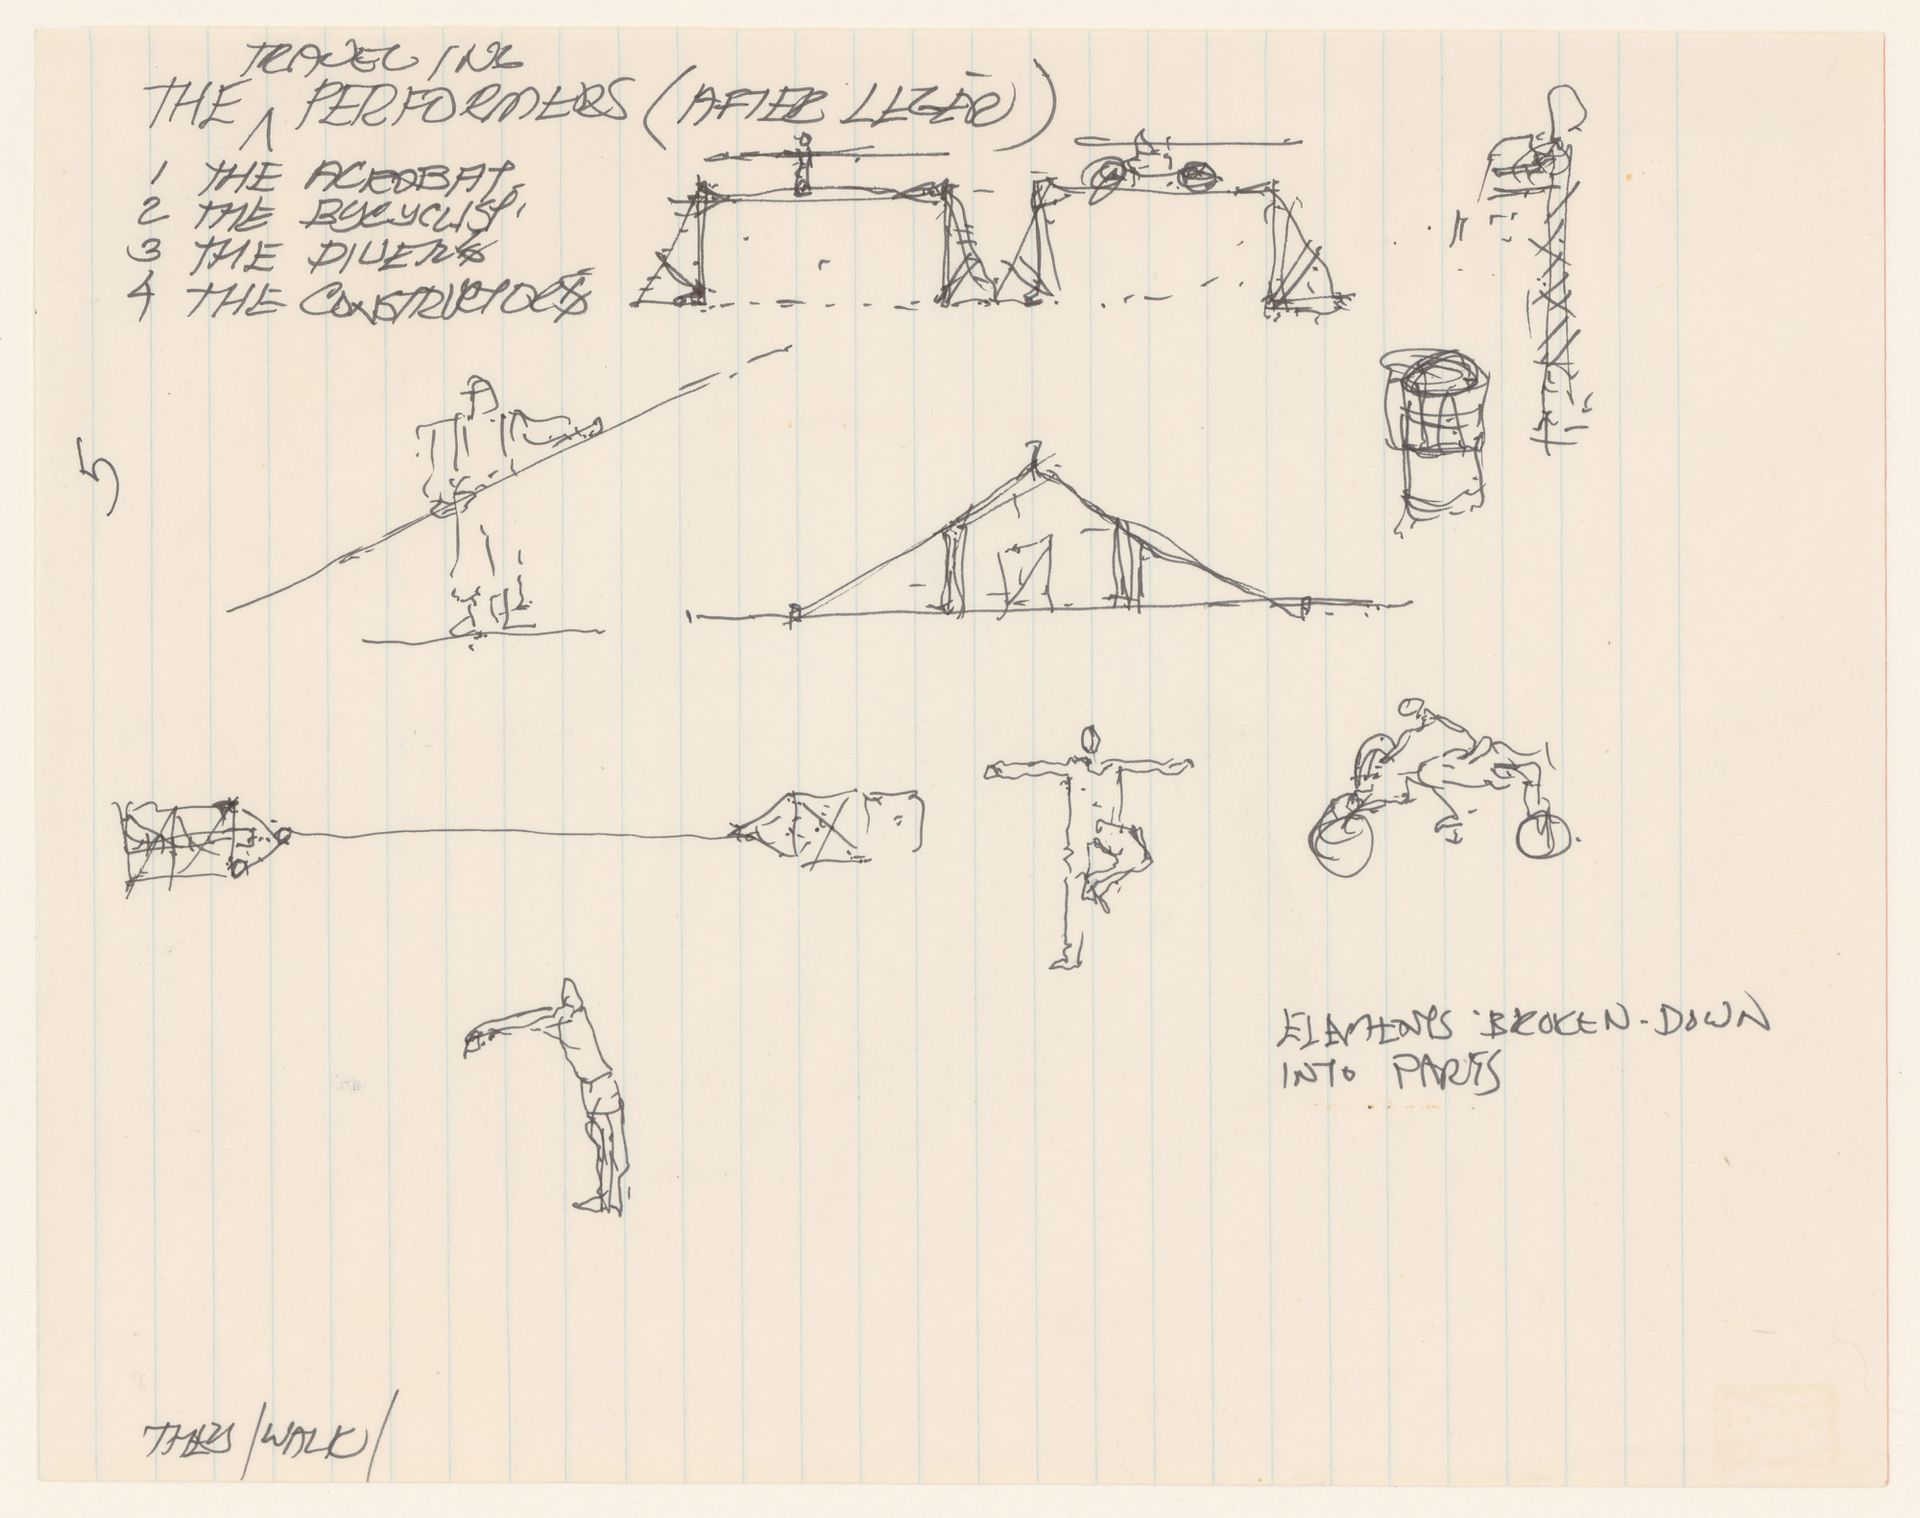 TRAVELING
THE ∧ PERFORMERS (AFTER LEGER)
1 THE ACROBAT,
2 THE BYCYCLIST,
3 THE DIVERS
4 THE CONSTRUCTORS
5
ELEMENTS BROKEN-DOWN
INTO PARTS
THEY /WALK/